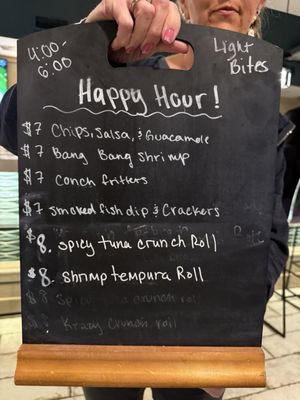 4:00-
6:00
Light
Bites
Happy Hour!
$7 Chips, Salsa, & Guacamole
$7 Bang Bang Shrimp
$7 Conch fritters
$7 Smoked fish dip & Crackers
$8. Spicy tuna crunch Roll
$8. Shrimp tempura Roll
$8 Spicy tuna crunch roll
Krazy Crunch roll